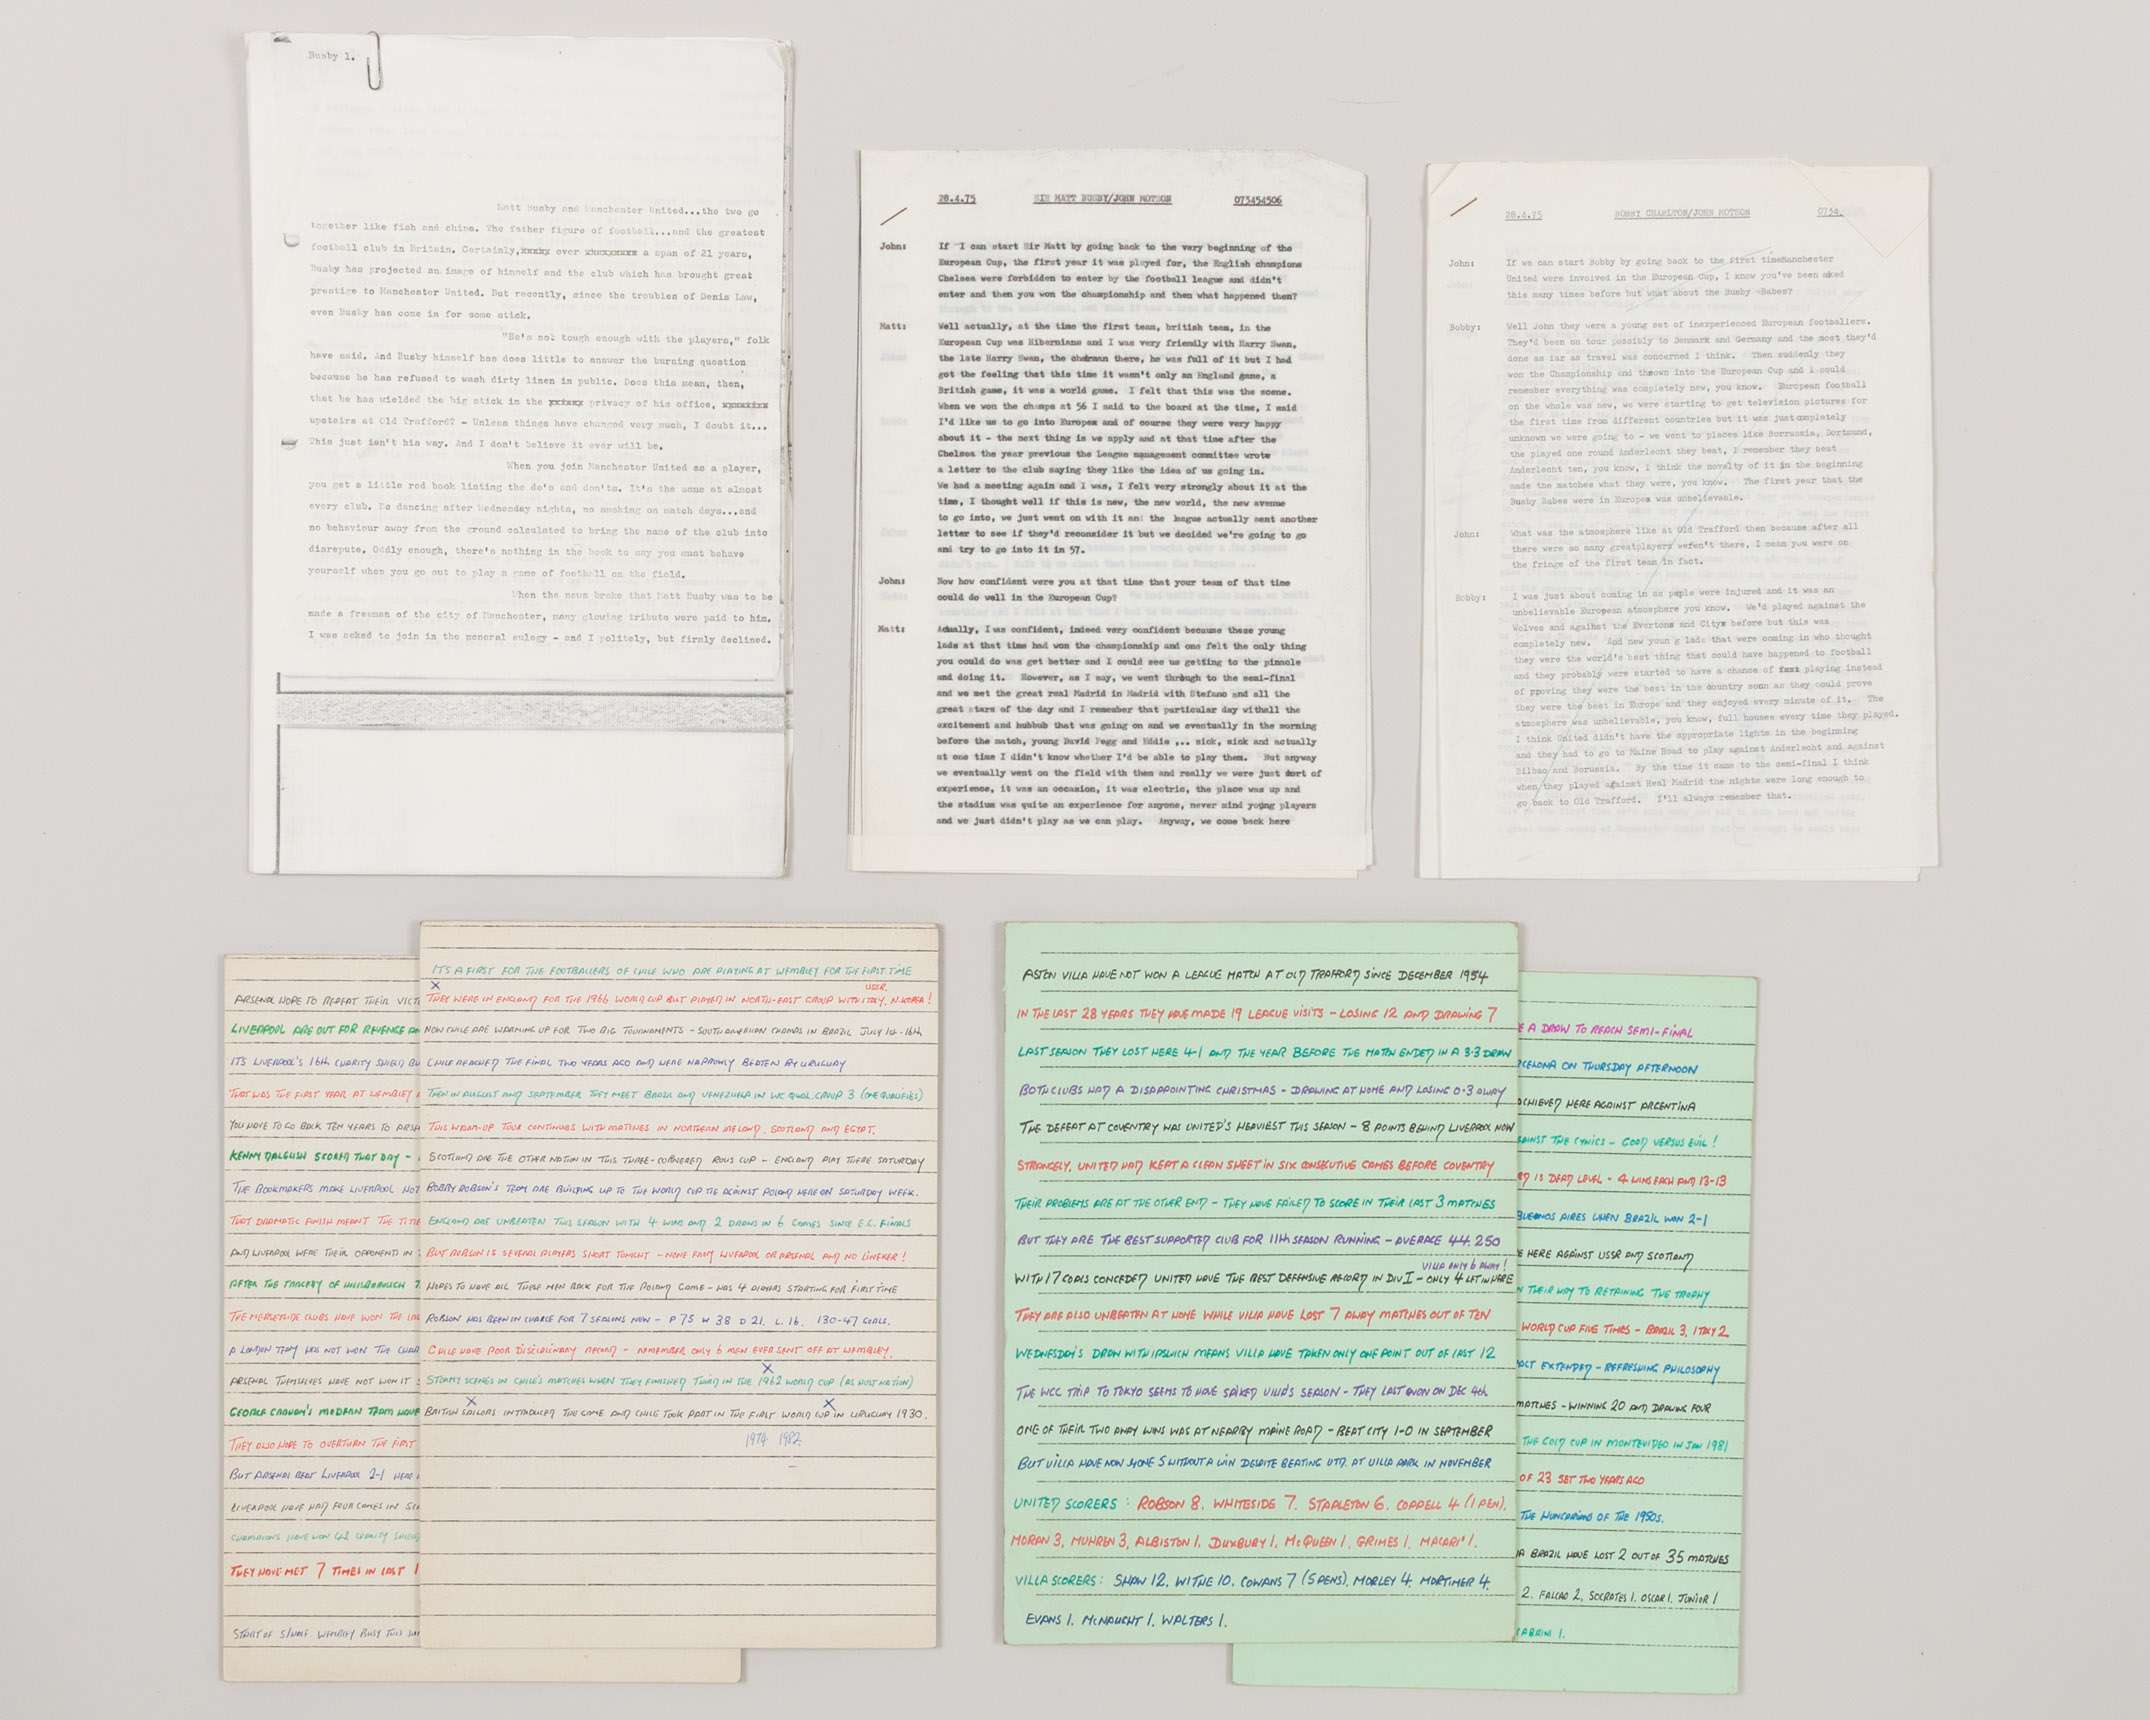 Busby 1.
Matt Busby and Manchester United...the two go
together like fish and chips. The father figure of football...and the greatest
football club in Britain. Certainly,xxxxx over xxxxxxxxx a span of 21 years,
Busby has projected an image of himself and the club which has brought great
prestige to Manchester United. But recently, since the troubles of Denis Law,
even Busby has come in for some stick.
"He's not tough enough with the players," folk
have said. And Busby himself has does little to answer the burning question
because he has refused to wash dirty linen in public. Does this mean, then,
that he has wielded the big stick in the xxxxxx privacy of his office, xxxxxxxx
upstairs at Old Trafford? - Unless things have changed very much, I doubt it...
This just isn't his way. And I don't believe it ever will be.
When you join Manchester United as a player,
you get a little red book listing the do's and don'ts. It's the same at almost
every club. No dancing after Wednesday nights, no smoking on match days...and
no behaviour away from the ground calculated to bring the name of the club into
disrepute. Oddly enough, there's nothing in the book to say you must behave
yourself when you go out to play a game of football on the field.
When the news broke that Matt Busby was to be
made a freeman of the city of Manchester, many glowing tributes were paid to him.
I was asked to join in the general eulogy - and I politely, but firmly declined.
28.4.75 SIR MATT BUSBY/JOHN MOTSON 075454506
John: If I can start Sir Matt by going back to the very beginning of the
European Cup, the first year it was played for, the English champions
Chelsea were forbidden to enter by the football league and didn't
enter and then you won the championship and then what happened then?
Matt: Well actually, at the time the first team, british team, in the
European Cup was Hibernians and I was very friendly with Harry Swan,
the late Harry Swan, the chairman there, he was full of it but I had
got the feeling that this time it wasn't only an England game, a
British game, it was a world game. I felt that this was the scene.
When we won the champs at 56 I said to the board at the time, I said
I'd like us to go into Europex and of course they were very happy
about it - the next thing is we apply and at that time after the
Chelsea the year previous the League management committee wrote
a letter to the club saying they like the idea of us going in.
We had a meeting again and I was, I felt very strongly about it at the
time, I thought well if this is new, the new world, the new avenue
to go into, we just went on with it an: the league actually sent another
letter to see if they'd reconsider it but we decided we're going to go
and try to go into it in 57.
John: Now how confident were you at that time that your team of that time
could do well in the European Cup?
Matt: Actually, I was confident, indeed very confident because these young
lads at that time had won the championship and one felt the only thing
you could do was get better and I could see us getting to the pinacle
and doing it. However, as I say, we went through to the semi-final
and we met the great real Madrid in Madrid with Stefano and all the
great stars of the day and I remember that particular day withall the
excitement and hubbub that was going on and we eventually in the morning
before the match, young David Pegg and Eddie ... sick, sick and actually
at one time I didn't know whether I'd be able to play them. But anyway
we eventually went on the field with them and really we were just sort of
experience, it was an occasion, it was electric, the place was up and
the stadium was quite an experience for anyone, never mind young players
and we just didn't play as we can play. Anyway, we come back here
28.4.75 BOBBY CHARLTON/JOHN MOTSON 0754.
John: If we can start Bobby by going back to the first timeManchester
United were involved in the European Cup, I know you've been asked
this many times before but what about the Busby -Babes?
Bobby: Well John they were a young set of inexperienced European footballers.
They'd been on tour possibly to Denmark and Germany and the most they'd
done as far as travel was concerned I think. Then suddenly they
won the Championship and thrown into the European Cup and I could
remember everything was completely new, you know. European football
on the whole was new, we were starting to get television pictures for
the first time from different countries but it was just completely
unknown we were going to - we went to places like Borrussia, Dortmund,
the played one round Anderlecht they beat, I remember they beat
Anderlecht ten, you know, I think the novelty of it in the beginning
made the matches what they were, you know. The first year that the
Busby Babes were in Europex was unbelievable.
John: What was the atmosphere like at Old Trafford then because after all
there were so many greatplayers weren't there, I mean you were on
the fringe of the first team in fact.
Bobby: I was just about coming in as people were injured and it was an
unbelievable European atmosphere you know. We'd played against the
Wolves and against the Evertons and Citys before but this was
completely new. And new young lads that were coming in who thought
they were the world's best thing that could have happened to football
and they probably were started to have a chance of playing instead
of proving they were the best in the country soon as they could prove
they were the best in Europe and they enjoyed every minute of it. The
atmosphere was unbelievable, you know, full houses every time they played.
I think United didn't have the appropriate lights in the beginning
and they had to go to Maine Road to play against Anderlecht and against
Bilbao and Borussia. By the time it came to the semi-final I think
when they played against Real Madrid the nights were long enough to
go back to Old Trafford. I'll always remember that.
ARSENAL HOPE TO REPEAT THEIR VICT
LIVERPOOL ARE OUT FOR REVENGE
ITS LIVERPOOL'S 16th CHARITY SHIELD
THAT WAS THE FIRST YEAR AT WEMBLEY
YOU HAVE TO GO BACK TEN YEARS TO
KENNY DALGLISH SCORED THAT DAY -
THE BOOKMAKERS MAKE LIVERPOOL
THAT DRAMATIC FINISH MEANT THE TITLE
AND LIVERPOOL WERE THEIR OPPONENTS IN
AFTER THE TRAGEDY OF HILLSBOROUGH
THE MERSEYSIDE CLUBS HAVE WON THE
A LONDON TEAM HAS NOT WON THE
ARSENAL THEMSELVES HAVE NOT WON IT
GEORGE GRAHAM'S MODERN TEAM HAVE
THEY ALSO HOPE TO OVERTURN THE FIRST
BUT ARSENAL BEAT LIVERPOOL 2-1 HERE
LIVERPOOL HAVE HAD FOUR GAMES IN
CHAMPIONS HAVE WON
THEY HAVE MET 7 TIMES IN LAST 1
START OF WEMBLEY BUSY THIS
ITS A FIRST FOR THE FOOTBALLERS OF CHILE WHO ARE PLAYING AT WEMBLEY FOR THE FIRST TIME
USSR.
THEY WERE IN ENGLAND FOR THE 1966 WORLD CUP BUT PLAYED IN NORTH-EAST GROUP WITH ITALY, N. KOREA!
NOW CHILE ARE WARMING UP FOR TWO BIG TOURNAMENTS - SOUTH AMERICAN CHAMPS IN BRAZIL JULY 1st-16th
CHILE REACHED THE FINAL TWO YEARS AGO AND WERE NARROWLY BEATEN BY URUGUAY
THEN IN AUGUST AND SEPTEMBER THEY MEET BRAZIL AND VENEZUELA IN WC QUAL. GROUP 3 (ONE QUALIFIES)
THIS WARM-UP TOUR CONTINUES WITH MATCHES IN NORTHERN IRELAND, SCOTLAND AND EGYPT.
SCOTLAND ARE THE OTHER NATION IN THIS THREE-CORNERED ROUS CUP - ENGLAND PLAY THERE SATURDAY
BOBBY ROBSON'S TEAM ARE BUILDING UP TO THE WORLD CUP TIE AGAINST POLAND HERE ON SATURDAY WEEK.
ENGLAND ARE UNBEATEN THIS SEASON WITH 4 WINS AND 2 DRAWS IN 6 GAMES SINCE E.C. FINALS
BUT ROBSON IS SEVERAL PLAYERS SHORT TONIGHT - NONE FROM LIVERPOOL OR ARSENAL AND NO LINEKER!
HOPES TO HAVE ALL THESE MEN BACK FOR THE POLAND GAME - HAS 4 PLAYERS STARTING FOR FIRST TIME
ROBSON HAS BEEN IN CHARGE FOR 7 SEASONS NOW - P 75 W 38 D 21. L. 16. 130-47 GOALS.
CHILE HAVE POOR DISCIPLINARY RECORD - REMEMBER ONLY 6 MEN EVER SENT OFF AT WEMBLEY.
STORMY SCENES IN CHILE'S MATCHES WHEN THEY FINISHED THIRD IN THE 1962 WORLD CUP (AS HOST NATION)
BRITISH SAILORS INTRODUCED THE GAME AND CHILE TOOK PART IN THE FIRST WORLD CUP IN URUGUAY 1930.
1974 1982
ASTON VILLA HAVE NOT WON A LEAGUE MATCH AT OLD TRAFFORD SINCE DECEMBER 1954
IN THE LAST 28 YEARS THEY HAVE MADE 19 LEAGUE VISITS - LOSING 12 AND DRAWING 7
LAST SEASON THEY LOST HERE 4-1 AND THE YEAR BEFORE THE MATCH ENDED IN A 3-3 DRAW
BOTH CLUBS HAD A DISAPPOINTING CHRISTMAS - DRAWING AT HOME AND LOSING 0-3 AWAY
THE DEFEAT AT COVENTRY WAS UNITED'S HEAVIEST THIS SEASON - 8 POINTS BEHIND LIVERPOOL NOW
STRANGELY, UNITED HAD KEPT A CLEAN SHEET IN SIX CONSECUTIVE GAMES BEFORE COVENTRY
THEIR PROBLEMS ARE AT THE OTHER END - THEY HAVE FAILED TO SCORE IN THEIR LAST 3 MATCHES
BUT THEY ARE THE BEST SUPPORTED CLUB FOR 11th SEASON RUNNING - AVERAGE 44.250
VILLA ONLY 6 AWAY!
WITH 17 GOALS CONCEDED UNITED HAVE THE BEST DEFENSIVE RECORD IN DIV I - ONLY 4 LET IN HERE
THEY ARE ALSO UNBEATEN AT HOME WHILE VILLA HAVE LOST 7 AWAY MATCHES OUT OF TEN
WEDNESDAY'S DRAW WITH IPSWICH MEANS VILLA HAVE TAKEN ONLY ONE POINT OUT OF LAST 12
THE WCC TRIP TO TOKYO SEEMS TO HAVE SPIKED VILLA'S SEASON - THEY LAST WON ON DEC 4th
ONE OF THEIR TWO AWAY WINS WAS AT NEARBY MAINE ROAD - BEAT CITY 1-0 IN SEPTEMBER
BUT VILLA HAVE NOW GONE 5 WITHOUT A WIN DESPITE BEATING UTD. AT VILLA PARK IN NOVEMBER
UNITED SCORERS: ROBSON 8. WHITESIDE 7. STAPLETON 6. COPPELL 4 (1 PEN).
MORAN 3, MUHREN 3, ALBISTON 1. DUXBURY 1. McQUEEN 1. GRIMES 1. MACARI 1.
VILLA SCORERS: SHAW 12. WITHE 10. COWANS 7 (5 PENS). MORLEY 4. MORTIMER 4.
EVANS 1. McNAUGHT 1. WALTERS 1.
E A DRAW TO REACH SEMI-FINAL
RCELONA ON THURSDAY AFTERNOON
ACHIEVED HERE AGAINST ARGENTINA
GAINST THE CYNICS - GOOD VERSUS EVIL!
RD IS DEAD LEVEL - 4 WINS EACH AND 13-13
BUENOS AIRES WHEN BRAZIL WON 2-1
E HERE AGAINST USSR AND SCOTLAND
N THEIR WAY TO RETAINING THE TROPHY
WORLD CUP FIVE TIMES - BRAZIL 3, ITALY 2
EXTENDED - REFRESHING PHILOSOPHY
MATCHES - WINNING 20 AND DRAWING FOUR
THE GOLD CUP IN MONTEVIDEO IN JAN 1981
OF 23 SET TWO YEARS AGO
THE HUNGARIANS OF THE 1950s.
A BRAZIL HAVE LOST 2 OUT OF 35 MATCHES
2. FALCAO 2, SOCRATES 1. OSCAR 1. JUNIOR 1
CABRINI 1.